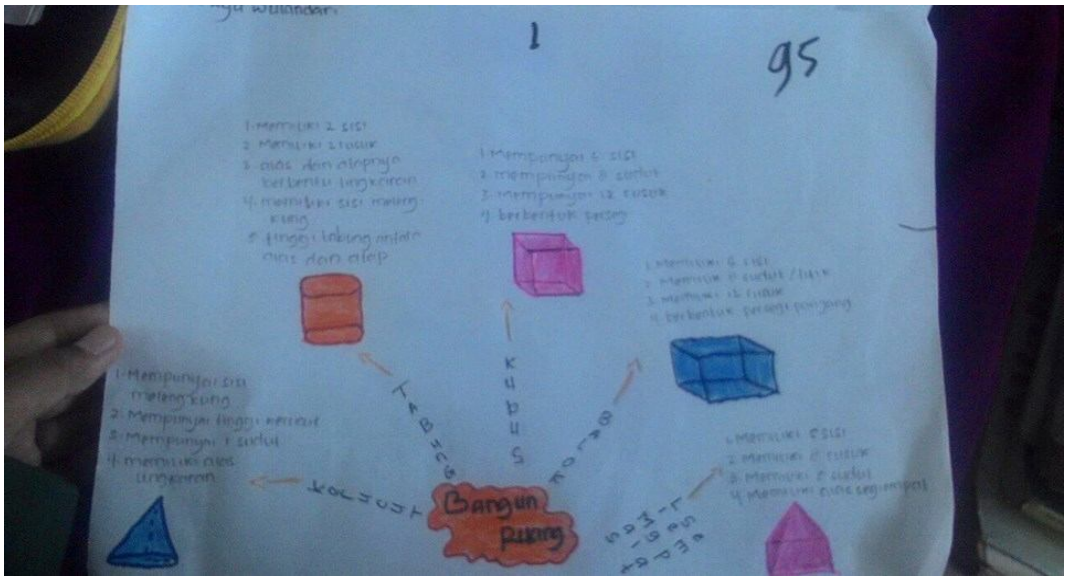 wulandari
1
95
1. Memiliki 2 sisi
2. Memiliki 2 rusuk
3. alas dan atapnya
berbentu lingkaran
4. memiliki sisi meleng
kung
5. tinggi tabung antara
alas dan atap
1. Mempunyai 6 sisi
2. mempunyai 8 sudut
3. mempunyai 12 rusuk
4. berbentuk persegi
1. Memiliki 6 sisi
2. Memiliki 8 sudut / titik
3. Memiliki 12 rusuk
4. berbentuk persegi panjang
1. Mempunyai sisi
melengkung
2. Mempunyai tinggi kerucut
3. Mempunyai 1 sudut
4. memiliki alas
lingkaran
1. Memiliki 5 sisi
2. Memiliki 8 rusuk
3. Memiliki 5 sudut
4. Memiliki alas segi empat
KERUCUT
TABUNG
KUBUS
BALOK
LIMAS
SEGI
EMPAT
Bangun
Ruang